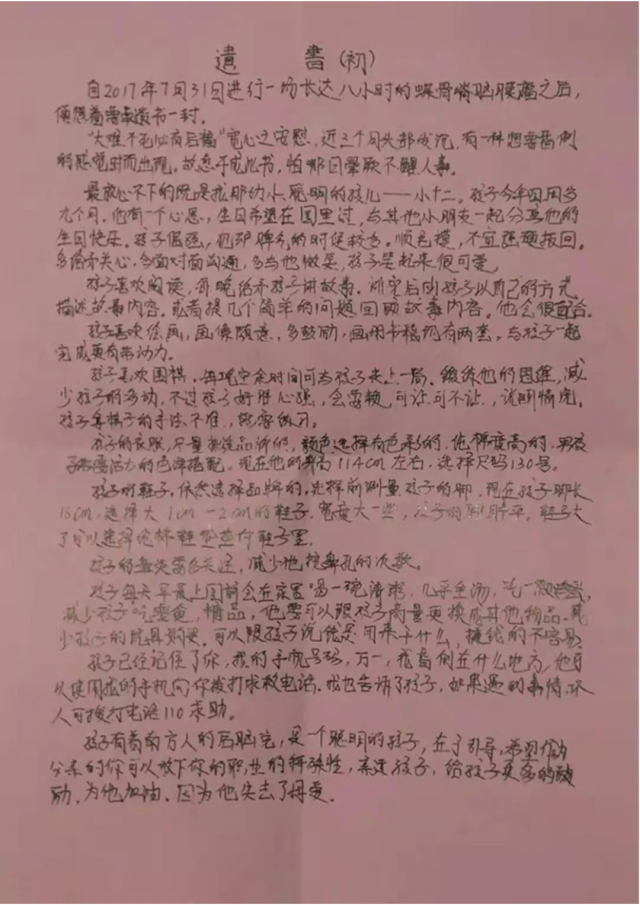 遺書(初)
自2017年7月31日进行一场长达八小时的蝶骨嵴脑膜瘤之后,
便想着遗书一封。
“大难不死必有后福”宽心之安慰,近三个月头部发沉,有一种想要昏倒
的感觉时而出现,故忐忑成此书,怕哪日晕厥不醒人事。
最放心不下的既是我那幼小、聪明的孩儿——小十二。孩子今年四周岁多
九个月,他有一个心愿,生日希望在园里过,与其他小朋友一起分享他的
生日快乐。孩子倔强,也犯脾气的时候较多。顺毛摸,不宜强硬扳回。
多给予关心,多面对面沟通,多与他微笑,孩子笑起来很可爱。
孩子喜欢阅读,每晚给予孩子讲故事。讲完后由孩子以自己的方式
描述故事内容。或者提几个简单的问题回助故事内容。他会很配合。
孩子喜欢绘画,画像随意,多鼓励,画册书桌上有两套,与孩子一起
完成更有带动力。
孩子喜欢围棋,每晚空余时间可与孩子来上一局。锻炼他的思维,减
少孩子的多动,不过孩子好胜心强,会要赖,可让可不让,说明情况。
孩子拿棋子的手法不准,需要练习。
孩子的衣服,尽量挑选品牌的,颜色选择有色彩的,纯棉度高的,男孩
子有活力的色泽搭配。现在他的身高114cm左右,选择尺码130号。
孩子的鞋子,依然选择品牌的,先择前测量孩子的脚,现在孩子脚长
18cm,选择大1cm-2cm的鞋子,宽度大一些,孩子的脚,鞋子大
了可以选择垫鞋垫在鞋子里。
孩子的鼻炎需多关注,减少他挖鼻孔的次数。
孩子每天早晨上园前会在家里喝一碗清粥,几乎全汤,
减少孩子吃零食,他要可以跟孩子商量更换成其他物品。减
少孩子的玩具购买。可以跟孩子说钱是用来干什么,挣钱的不容易。
孩子已经记住了你,我的手机号码,万一,我昏倒在什么地方,他可
以使用我的手机向你拨打求救电话。我也告诉了孩子,如果遇到事情,坏
人可拨打电话110求助。
孩子有着南方人的后脑壳,是个聪明的孩子,在于引导,希望作为
父亲的你可以放下你的职业的特殊性,亲近孩子,给孩子更多的鼓
励,为他加油。因为他失去了母爱。